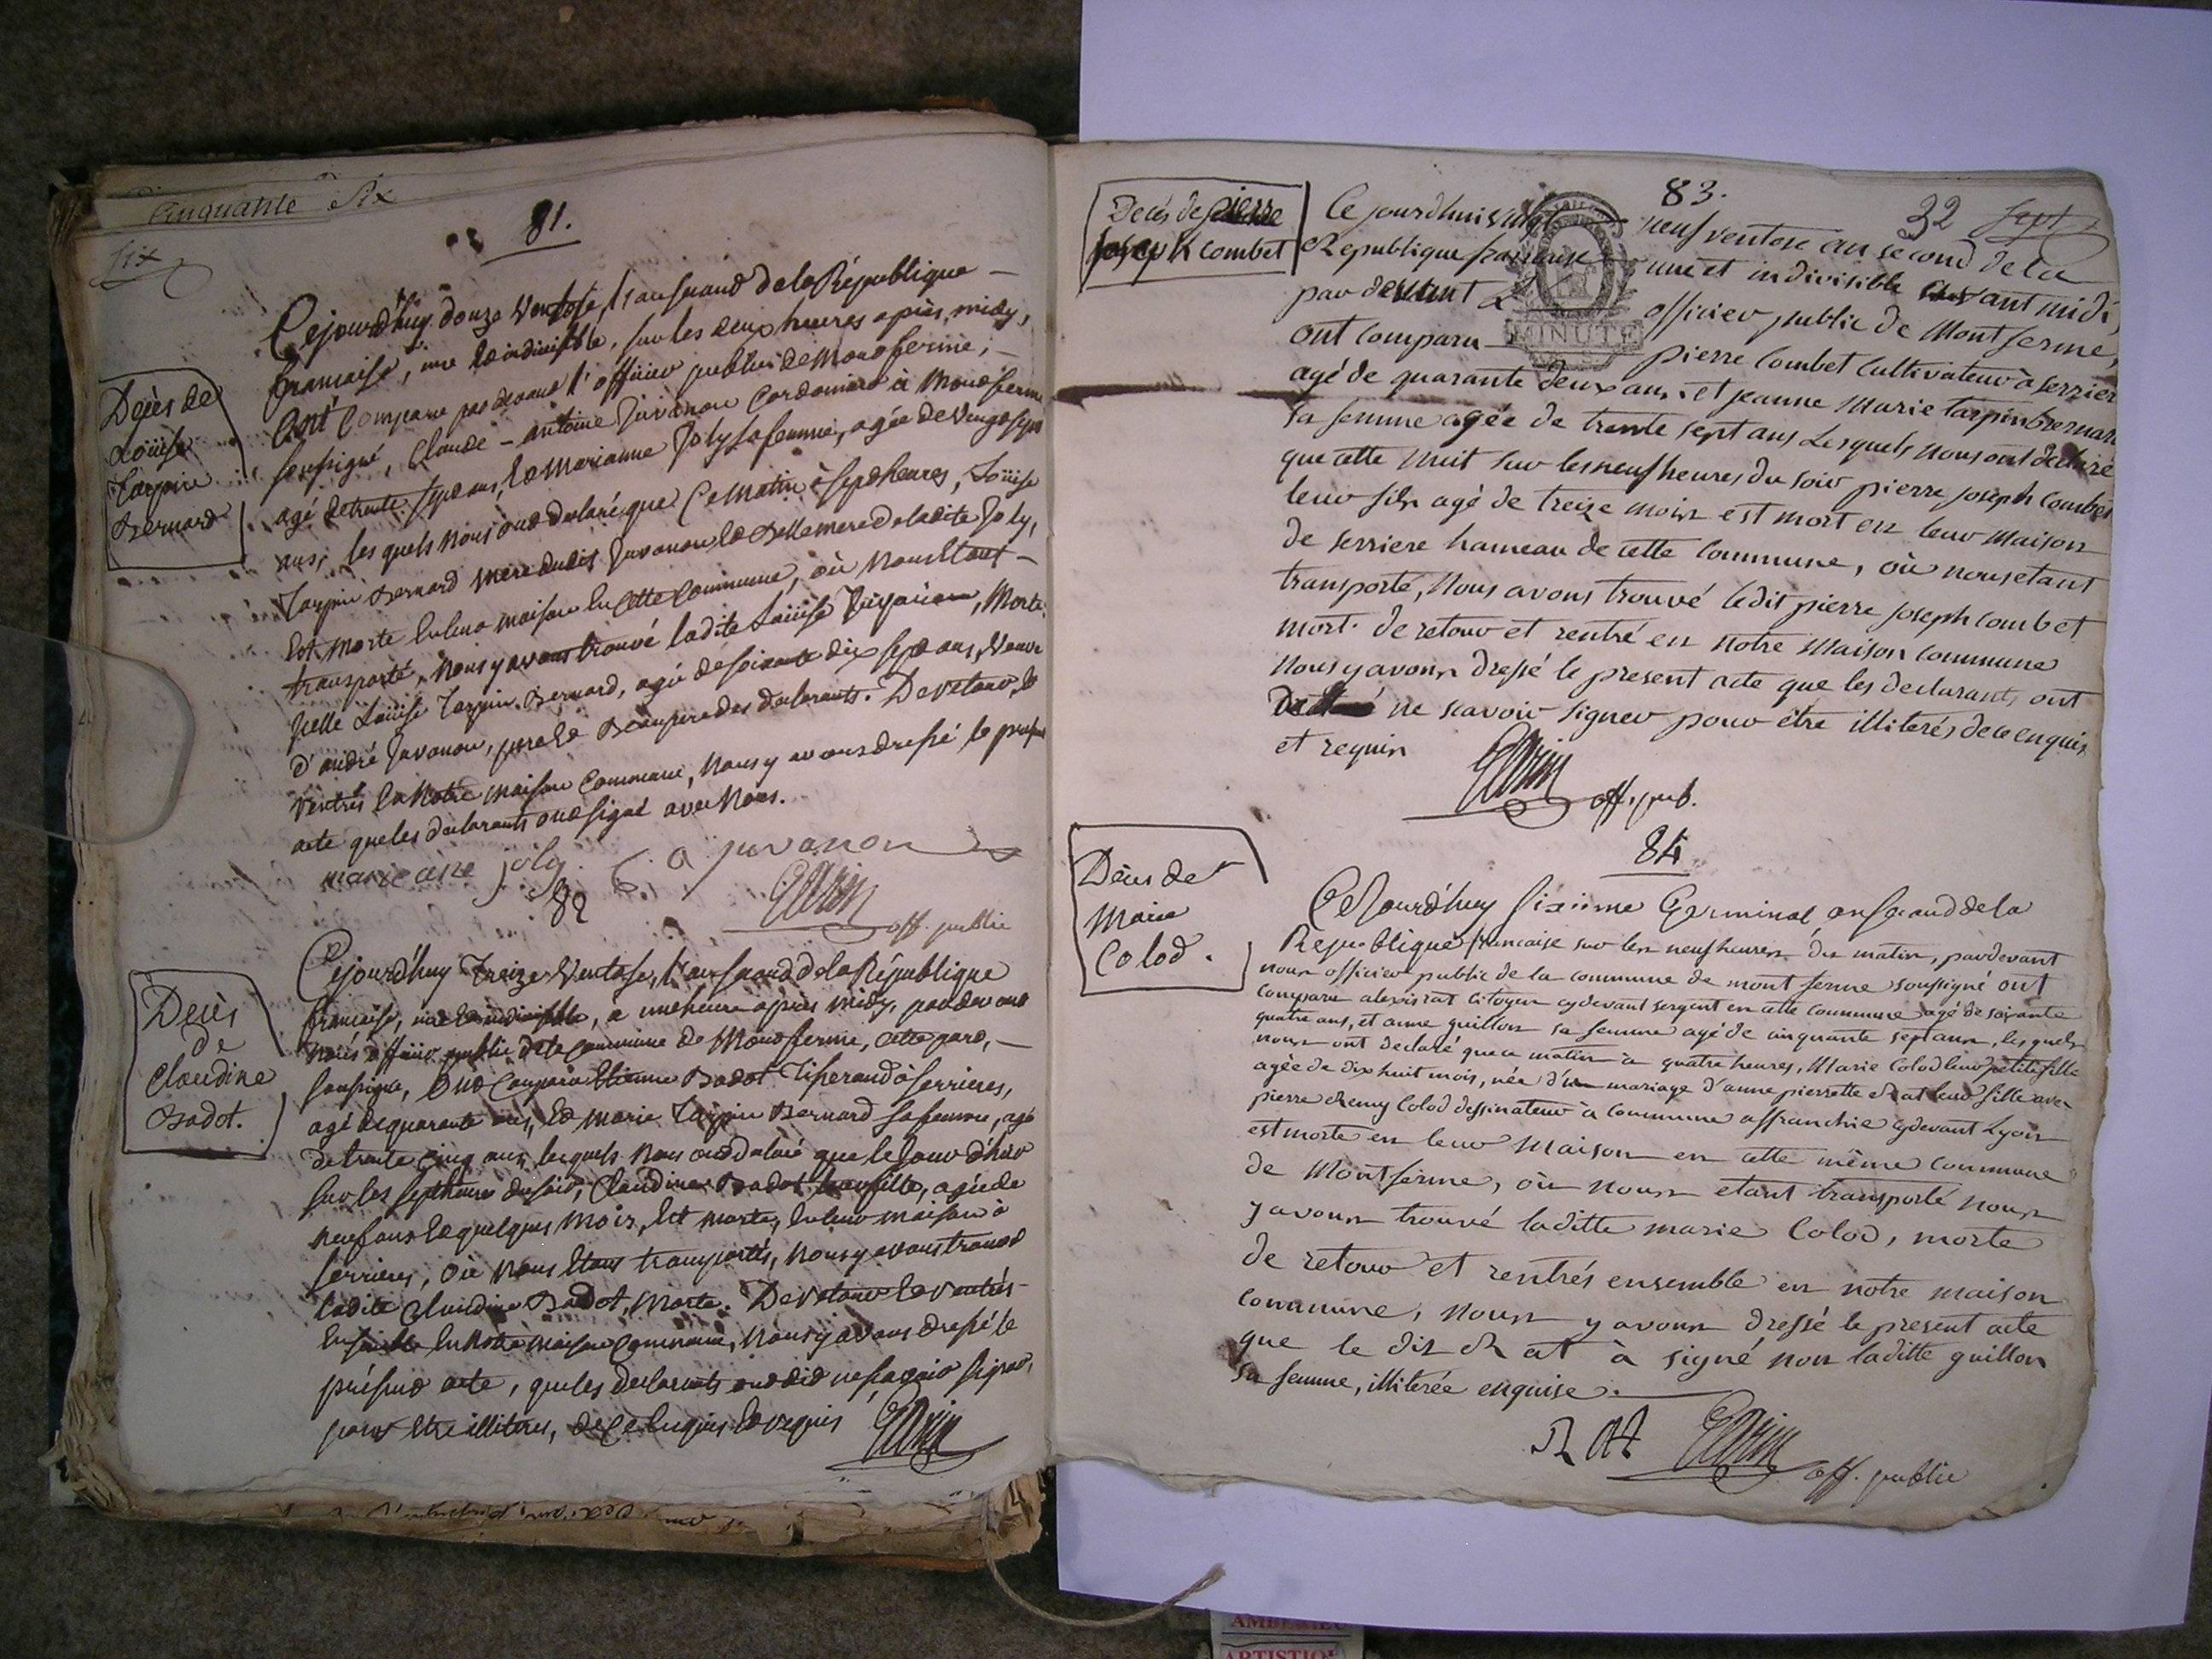 Cinquante Six
six
81.
Décès de
Loüise
Tarpin
Bernard
Cejourd'huy douze Ventose, l'an second de la République
francaise, une et indivisible, sur les deux heures après midy,
Ont comparu pardevant l'officier public de Montferme,
soussigné, Claude-antoine Juvanon Cordonnier à Montferme
agé de trente sept ans, et Marianne Joly sa femme, agée de vingt sept
ans, les quels nous ont declaré que ce matin à sept heures, Loüise
Tarpin Bernard mere dudit Juvanon et Bellemere de ladite Joly,
est morte en leur maison en cette Commune, où nous étant
transporté, nous y avons trouvé ladite Loüise Morte.
Icelle Loüise Tarpin Bernard, agée de soixante dix sept ans, Veuve
d'andré Juvanon, pere et Beaupere des declarants. De retour, et
rentrés en notre maison Commune, nous y avons dressé le present
acte que les declarants ont signé avec nous.
marie ane joly C. a juvanon
off. public
82
Décès
de
Claudine
Badot.
Cejourd'huy Treize Ventose, l'an second de la République
francaise, une et indivisible, a une heure après midy, pardevant
nous officier public de la Commune de Montferme,
soussigné, Ont Comparu Etienne Badot Tisserand à Serrieres,
agé de quarante ans, et marie Tarpin Bernard sa femme, agé
de trente cinq ans, lesquels nous ont declaré que le jour d'hier
sur les sept heures du soir, Claudine Badot leur fille, agée de
neuf ans et quelques mois, est morte, en leur maison à
Serrieres, où nous étant transportés, nous y avons trouvé
ladite Claudine Badot, Morte. De retour et rentrés
ensemble en notre maison Commune, nous y avons dressé le
présent acte, que les declarants ont dit ne savoir signer,
pour être illiteres, de ce enquis et requis
83.
32 sept
Decés de pierre
joseph combet
Ce jourdhui vingt neuf ventose an second de la
Republique francaise une et indivisible avant midi,
par devant officier public de Montferme,
ont comparu pierre Combet Cultivateur à serrier
agé de quarante deux ans et jeanne Marie tarpin bernar
sa femme agée de trente sept ans Lesquels nous ont declaré
que cette nuit sur les neuf heures du soir pierre joseph Combet
leur fils agé de treize mois est mort en leur maison
de serriere hameau de cette Commune, où nous etant
transporté, Nous avons trouvé ledit pierre joseph Combet
mort. De retour et rentré en notre Maison Commune
Nous y avons dressé le present acte que les declarants ont
ne scavoir signer pour être illiterés de ce enquis
et requis
off. pub.
84
Décès de
Marie
Colod.
CeJourd'huy Sixiéme Germinal, an second de la
Republique francaise sur les neuf heures du matin, pardevant
nous officier public de la commune de mont ferme soussigné ont
comparu alexis rat citoyen cydevant sergent en cette commune agé de soixante
quatre ans, et anne guillon sa femme agé de cinquante sept ans, les quels
nous ont declaré que ce matin à quatre heures, Marie Colod leur petite fille
agée de dix huit mois, née d'un mariage d'anne pierrette Rat leur fille avec
pierre Remy Colod dessinateur à commune affranchie cydevant Lyon
est morte en leur maison en cette même commune
de Montferme, où nous etant transporté nous
y avons trouvé laditte marie Colod, morte
de retour et rentrés ensemble en notre maison
commune, nous y avons dressé le present acte
que le dit Rat à signé non laditte guillon
sa femme, illiterée enquise.
RAt
off. public
MINUTE
AMBERIEU
ARTISTIQUE